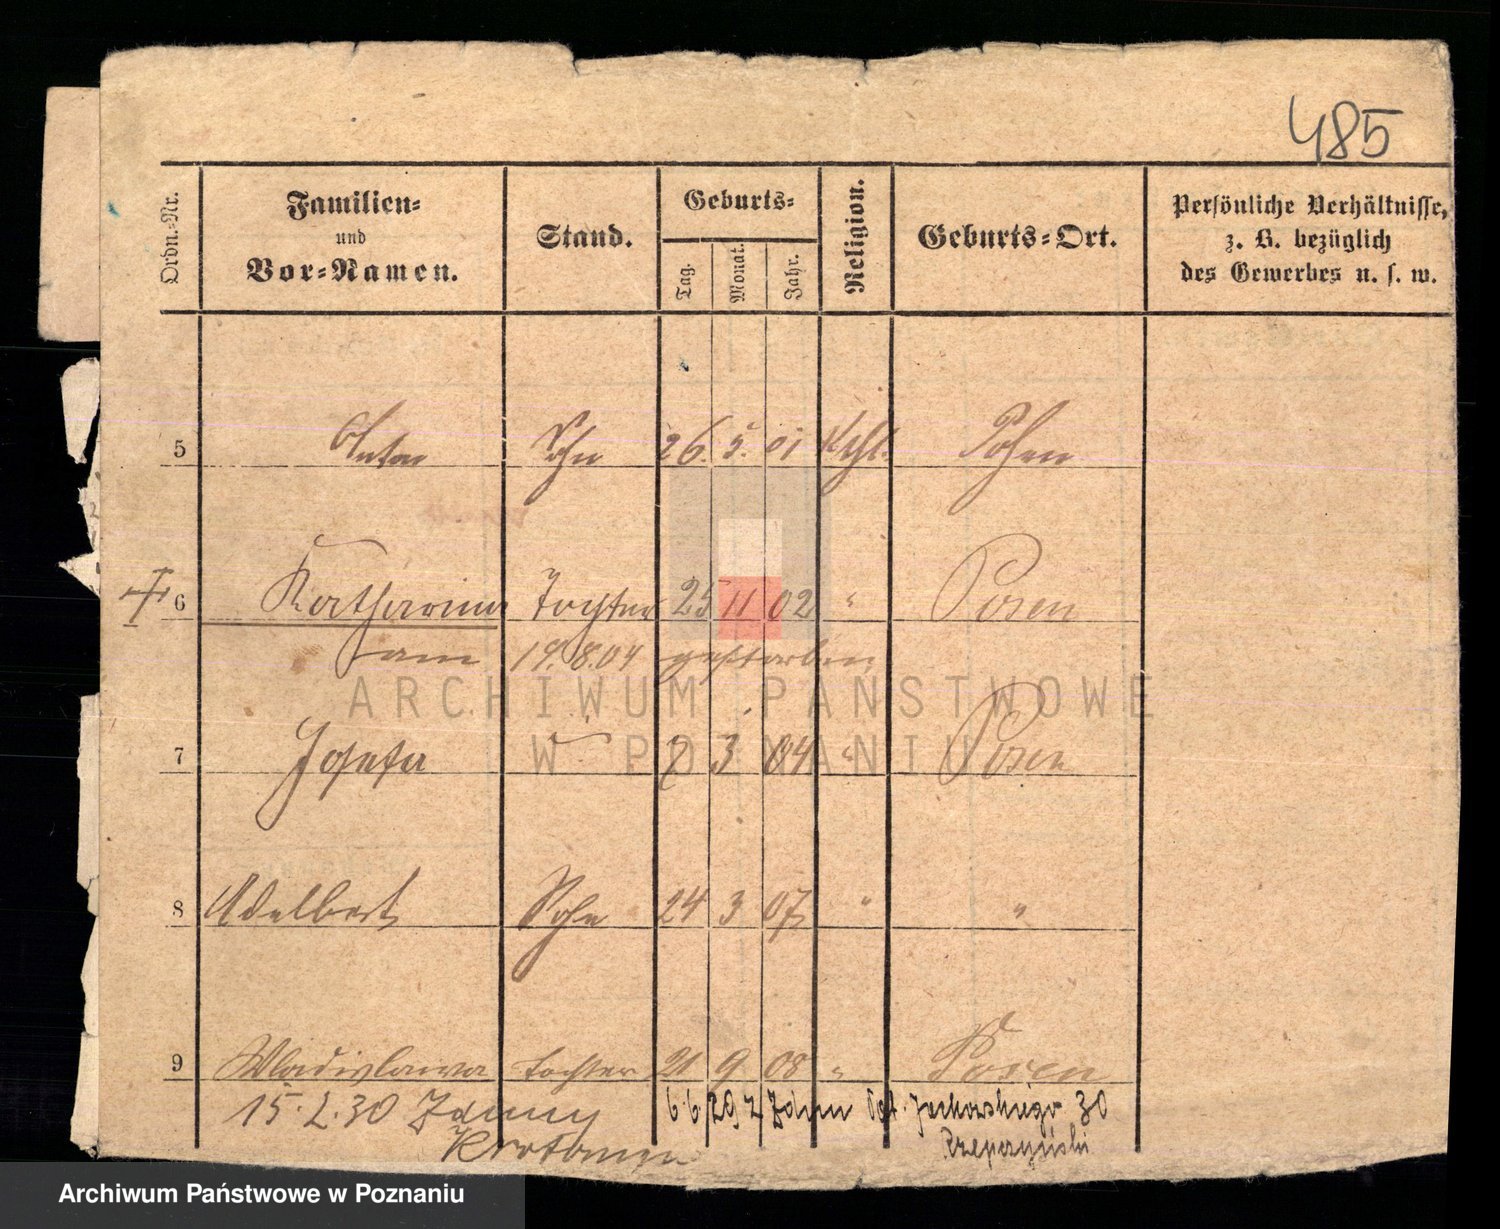 485
Ordn.-Nr.
Familien-
und
Vor-Namen.
Stand.
Geburts-
Tag.
Monat.
Jahr.
Religion.
Geburts-Ort.
Persönliche Verhältnisse,
z. B. bezüglich
des Gewerbes u. s. w.
5 Anton Sohn 26. 5. 01 Kthl. Posen
6 Katharina Tochter 25 11 02 " Posen
am 19.8.04 gestorben
ARCHIWUM PAŃSTWOWE
W POZNANIU
7 Josefa " 7 3 04 " Posen
8 Adelbert Sohn 24 3 07 " "
9 Wladislawa Tochter 21 9 08 " Posen
15.2.30 Zduny
6.6.29 z Jackowskiego 30
Krotoszyn
Rzepczyński
Archiwum Państwowe w Poznaniu